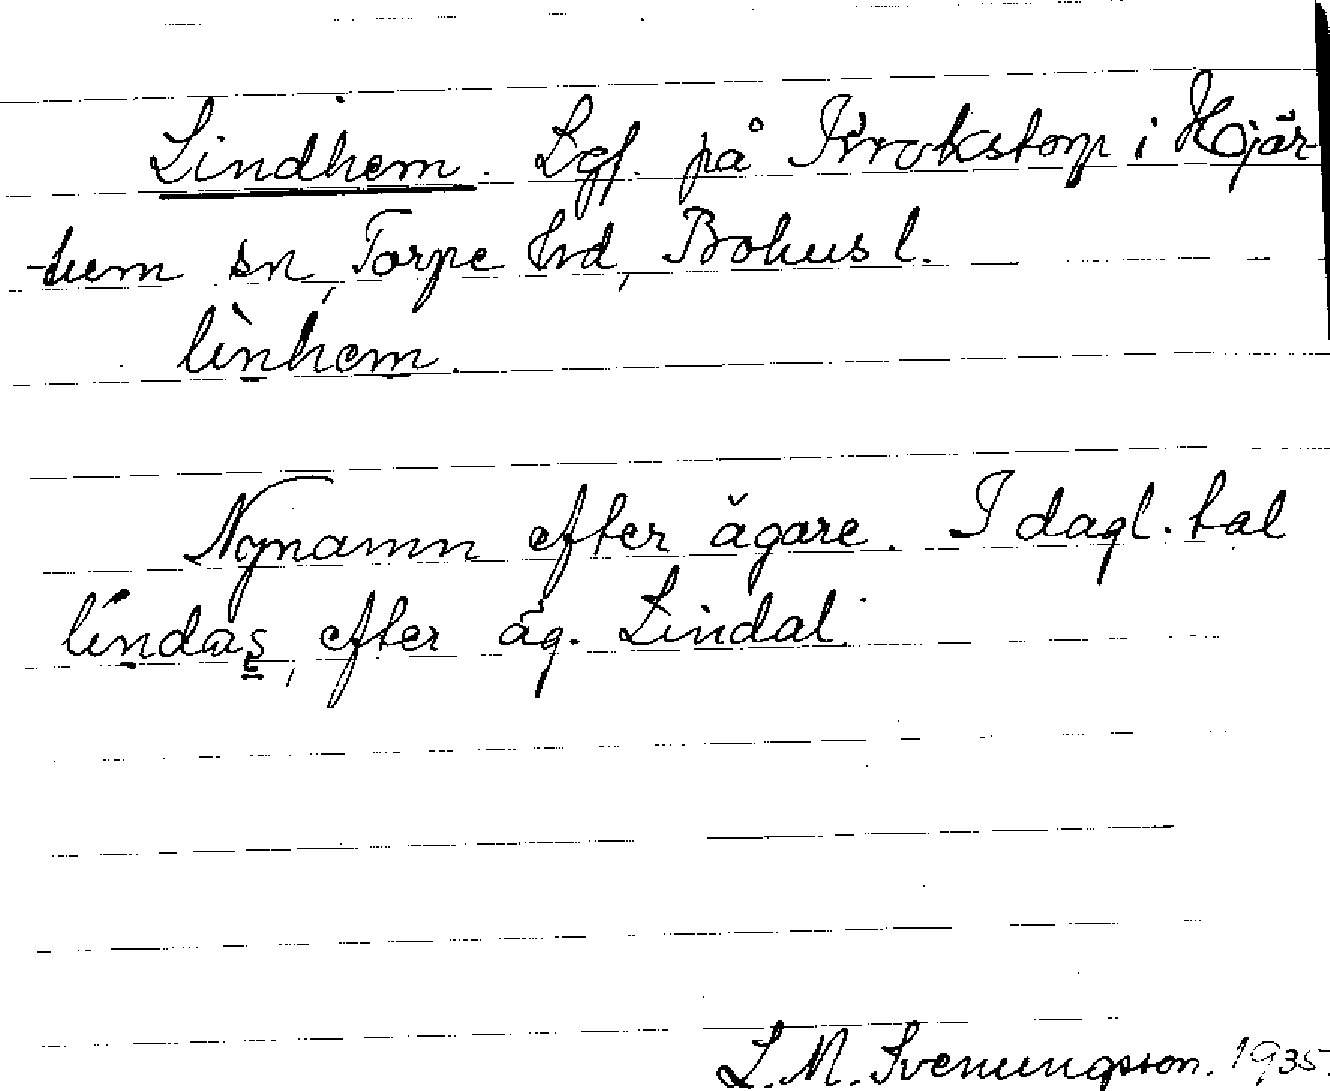 Lindhem. Lgf. på Krokstorp i Hjär-
tum sn, Torpe hd, Bohusl.
lìnhem.
Nynamn efter ägare. I dagl. tal
líndas, efter äg. Lindal
L. M. Svenungsson. 1935.